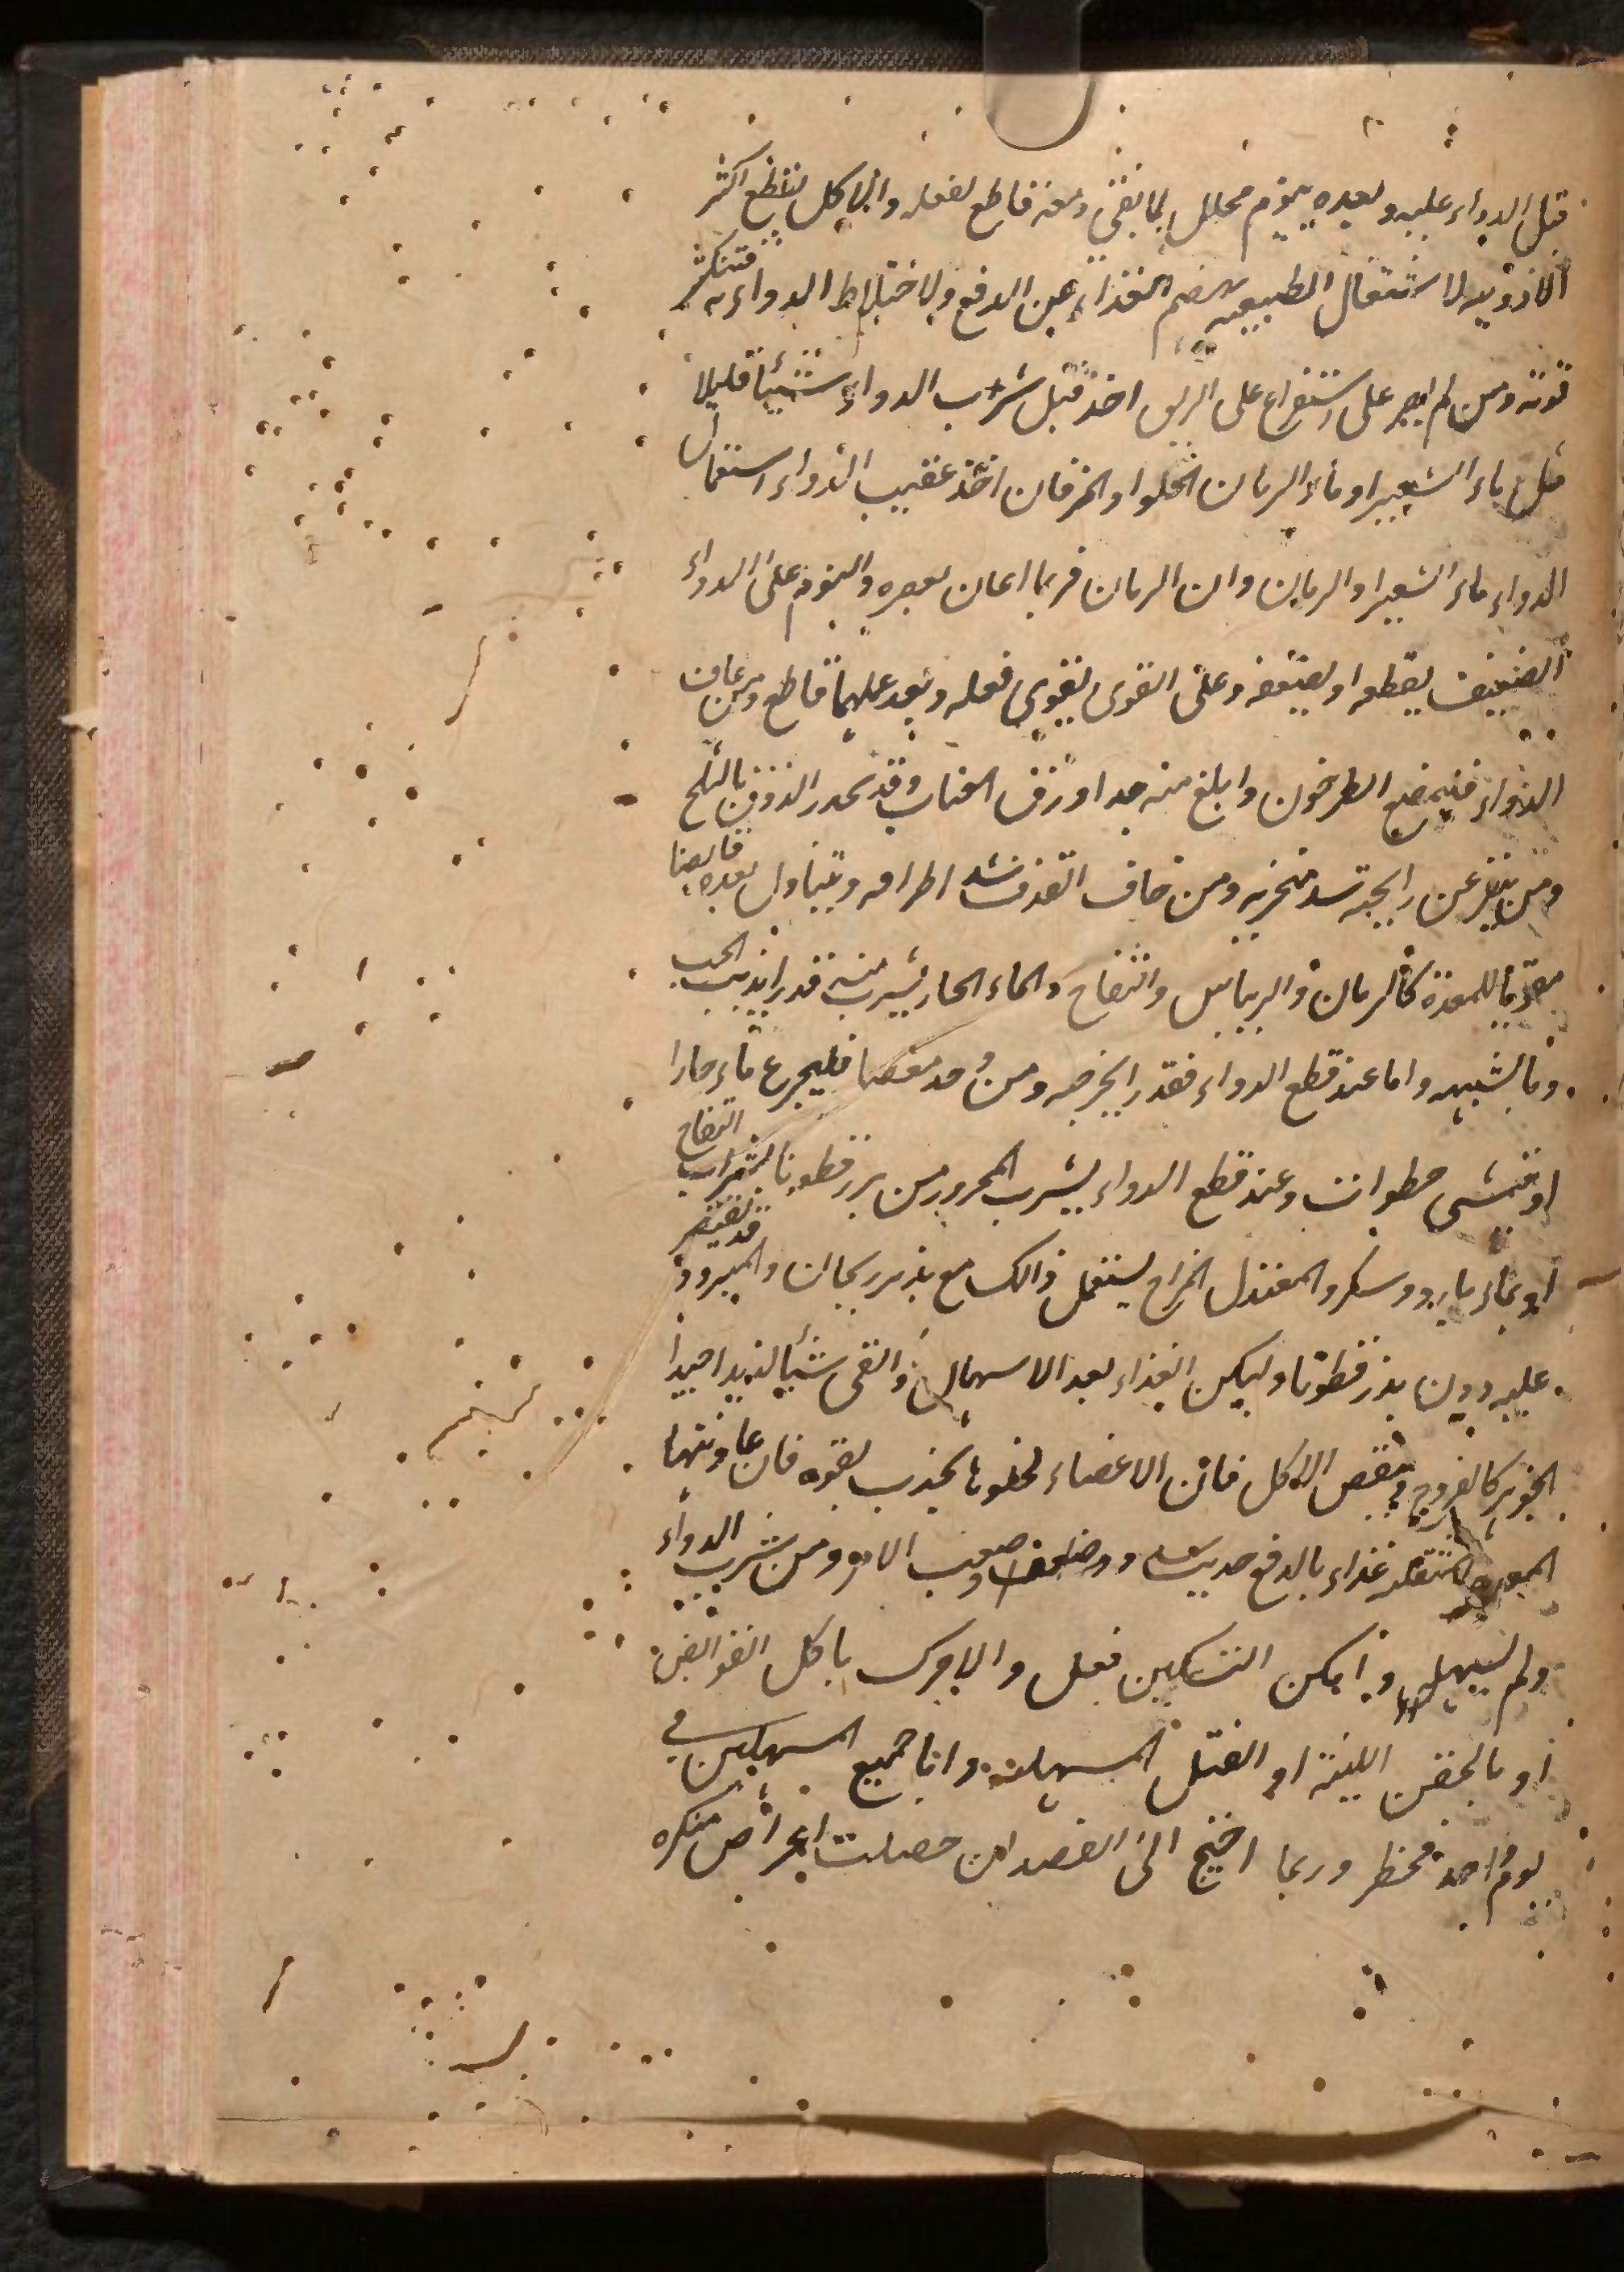 قبل الدواء عليه وبعده يوم محلل لما بقى ومعه قاطع لفعله والاكل يقطع اكثر
الادويه لاشتغال الطبيعيه بهضم الغذاء عن الدفع ولاختلاط الدواء به فتنكسر
قوته ومن لم يصبر على استفراغ على الريق اخذ قبل شرب الدواء شيئا قليلا
مثل ماء الشعير او ماء الرمان الحلو او المز فان اخذ عقيب الدواء استعمال
الدواء ماء الشعير او الرمان وان الرمان فربما اعان بعصره والنوم على الدواء
الضعيف يقطعه او يضعفه وعلى القوى يقوى فعله وبعد عملهما قاطع ومن عاف
الدواء فليمضغ الطرخون وابلغ منه جدا ورق العناب وقد يخدر الذوق بالثلج
ومن ينفر عن رايحته سد منخريه ومن خاف القذف شد اطرافه ويتناول بعده قابضا
مقويا للمعدة كالرمان والريباس والتفاح والماء الحار يشرب منه قدر ما يذيب الحب
وما يشبهه واما عند قطع الدواء فقدر ما يخرجه ومن وجد مغصا فليجرع ماء حارا
او يتمشى خطوات وعند قطع الدواء يشرب المحرور من بزر قطونا بشراب التفاح
او بماء بارد وسكر والمعتدل المزاج يستعمل ذالك مع بذر ريحان والمبرود قد يقتصر
عليه دون بذر قطونا وليكن الغذاء بعد الاسهال والقى شيئا لذيذا جيدا
الجوهر كالفروج وينقص الاكل فان الاعضاء لخلوها تجذب بقوه فان عاونتها
المعده غذاء بالدفع حدث سدد وصعب الامر ومن شرب الدواء
ولم يسهله وامكن التسكين فعل والا حرك باكل القوابض
او بالحقن اللينة او الفتل المسهله واما جميع المسهلين في
يوم واحد فخطر وربما احتيج الى الفصد ان حصلت اعراض منكره